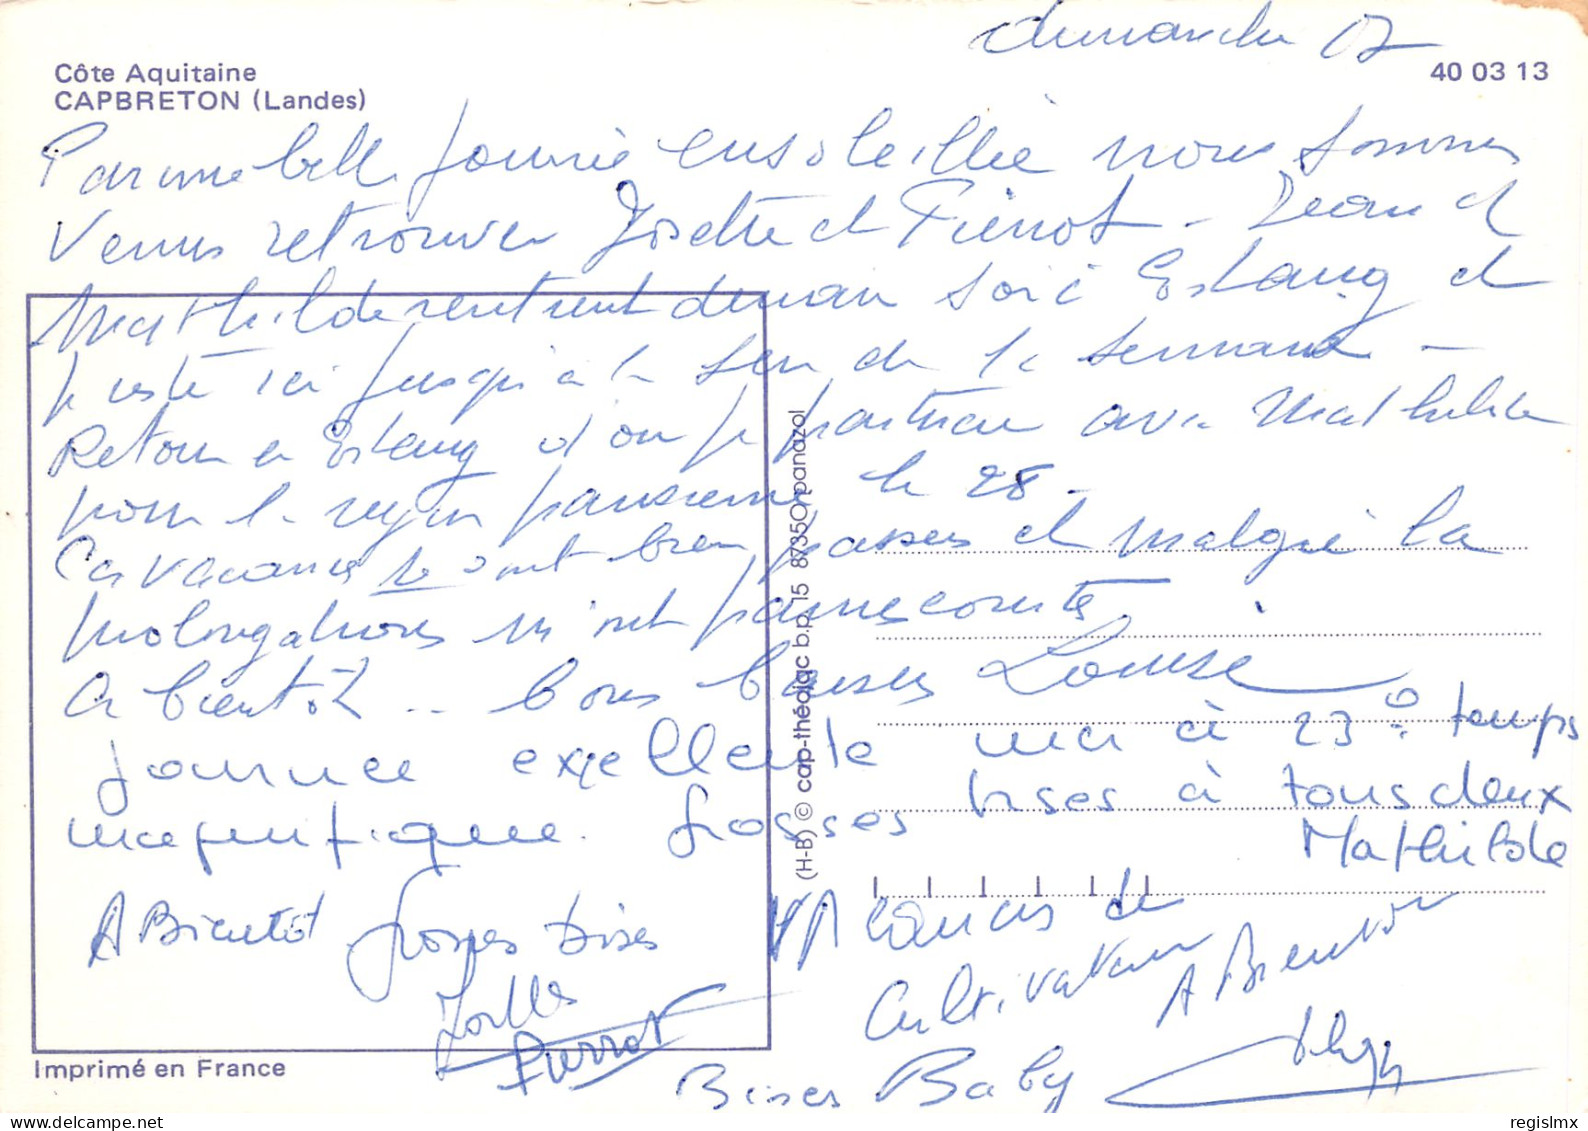 dimanche 07
Côte Aquitaine
CAPBRETON (Landes)
40 03 13
Par une belle journée ensoleillée nous sommes
venus retrouver Josette et Pierrot - Jean et
Mathilde rentrent demain soir à Estang et
je reste ici jusqu'à la fin de la semaine -
Retour à Estang d'où je partirai avec Mathilde
pour la région parisienne le 28.
Ces vacances se sont bien passées et malgré la
prolongations m'ont parues courtes.
A bientôt .. bons baisers Louise
journee exellente mer à 23° temps
magnifique. grosses bises à tous deux
Mathilde
A Bientôt grosses bises
Pierrot
vacances de
Cultivateur A Bientôt
Bises Baby
Imprimé en France
(H-B) © cap-théojac b.p. 15 87350 panazol
regislmx